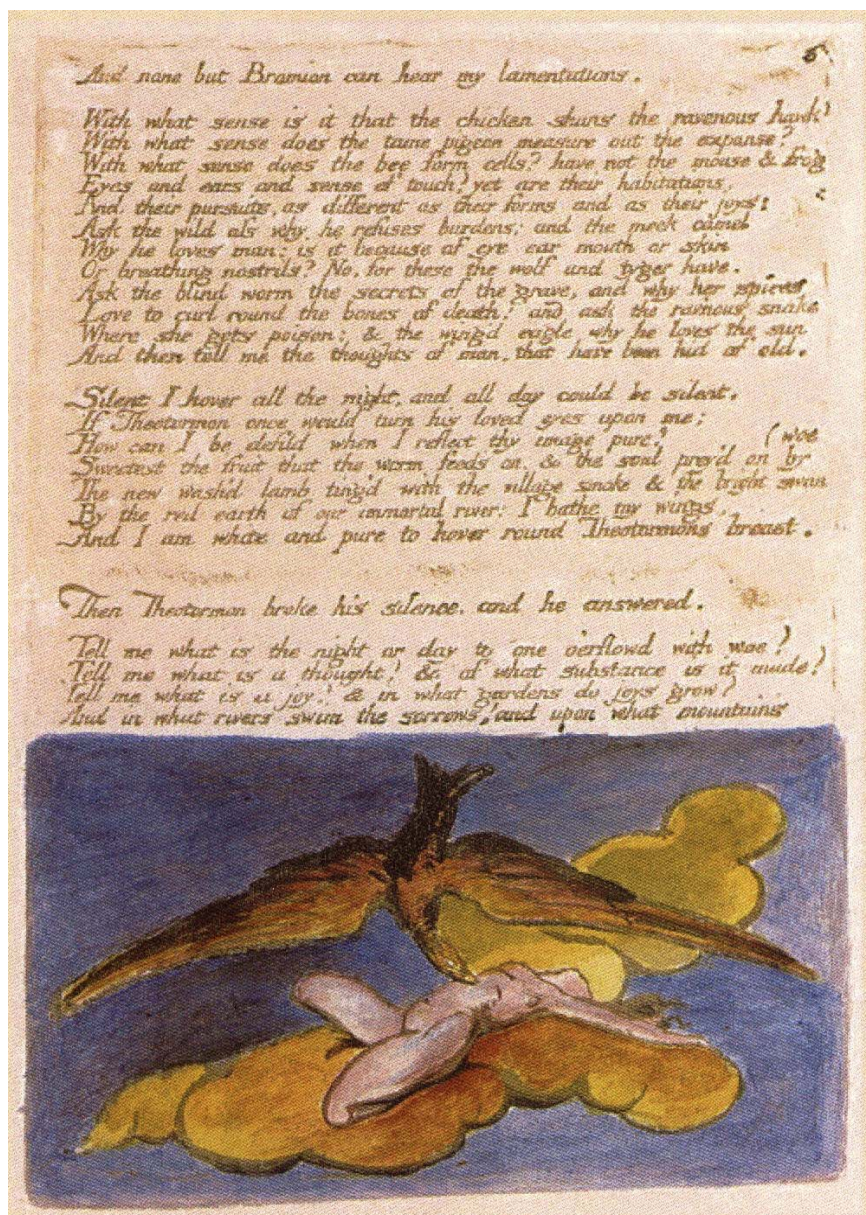 6
And none but Bromion can hear my lamentations.
With what sense is it that the chicken shuns the ravenous hawk?
With what sense does the tame pigeon measure out the expanse?
With what sense does the bee form cells? have not the mouse & frog
Eyes and ears and sense of touch? yet are their habitations,
And their pursuits, as different as their forms and as their joys:
Ask the wild ass why he refuses burdens; and the meek camel
Why he loves man: is it because of eye ear mouth or skin
Or breathing nostrils? No. for these the wolf and tyger have.
Ask the blind worm the secrets of the grave, and why her spires
Love to curl round the bones of death; and ask the rav'nous snake
Where she gets poison: & the wing'd eagle why he loves the sun
And then tell me the thoughts of man, that have been hid of old.
Silent I hover all the night, and all day could be silent.
If Theotormon once would turn his loved eyes upon me;
How can I be defild when I reflect thy image pure?
(woe
Sweetest the fruit that the worm feeds on. & the soul prey'd on by
The new wash'd lamb ting'd with the village smoke & the bright swan
By the red earth of our immortal river: I bathe my wings.
And I am white and pure to hover round Theotormons breast.
Then Theotormon broke his silence. and he answered.
Tell me what is the night or day to one o'erflowd with woe?
Tell me what is a thought? & of what substance is it made?
Tell me what is a joy? & in what gardens do joys grow?
And in what rivers swim the sorrows? and upon what mountains